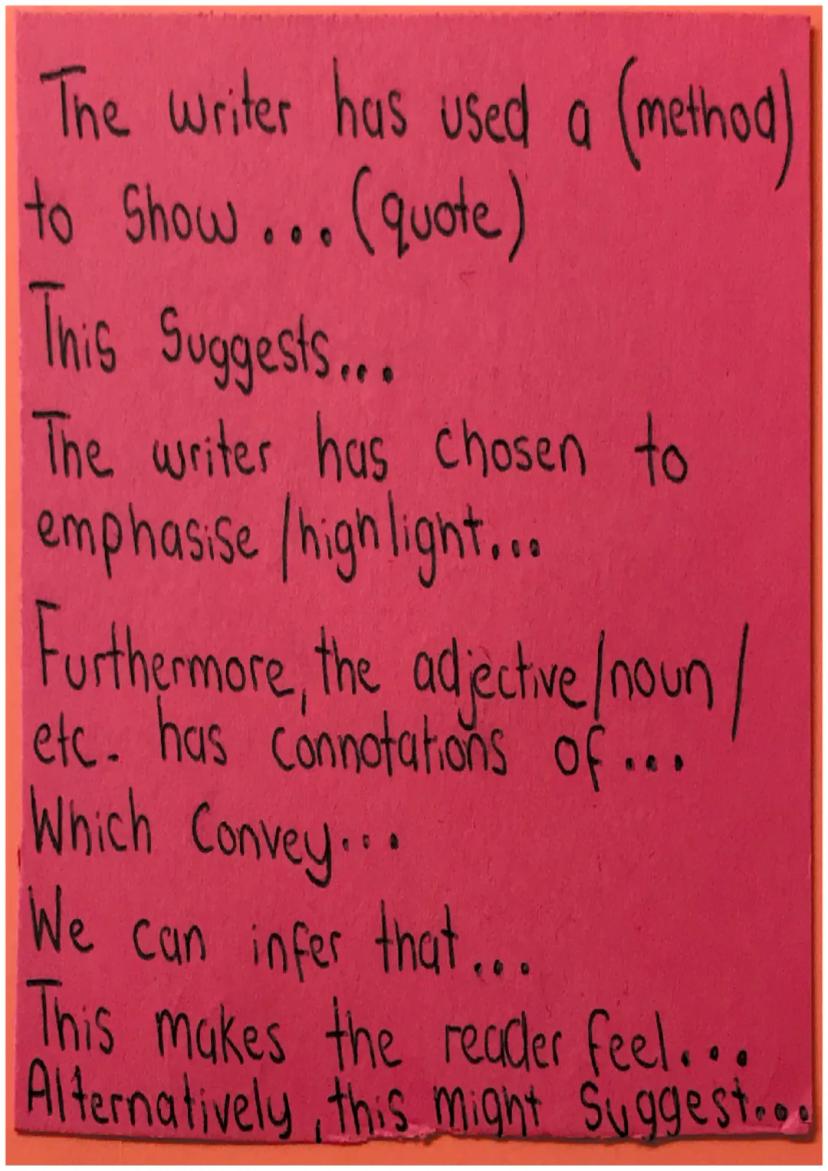 The writer has used a (method)
to show...(quote)
This suggests...
The writer has chosen to
emphasise/highlight...
Furthermore, the adjective/noun/
etc. has connotations of...
Which convey...
We can infer that...
This makes the reader feel...
Alternatively, this might suggest...